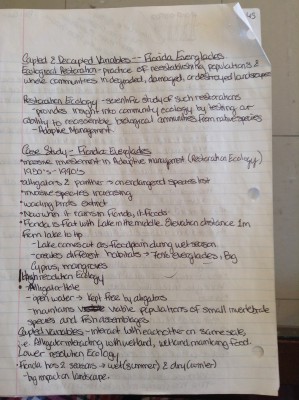 45
Coupled & Decoupled Variables -- Florida Everglades
Ecological Restoration - practice of reestablishing populations &
whole communities in degraded, damaged, or destroyed landscapes
Restoration Ecology - scientific study of such restorations
- provides insight into community ecology by testing our
ability to reassemble biological communities from native species
- Adaptive Management
Case Study - Florida Everglades
• massive investment in Adaptive managment (Restoration Ecology)
1980's - 1990's
• alligators & panther → on endangered species list
• invasive species increasing
• wading birds extinct
• Now when it rains in Florida, it floods
• Florida is flat with Lake in the middle. Elevation distance 1m
from lake to tip
- Lake comes out as floodplain during wet season
- creates different habitats → Everglades, Big
Cyprus, mangroves
High resolution Ecology
• Alligator Hole
- open water → kept free by alligators
- maintains viable populations of small invertebrate
species and fish assemblages
Coupled Variables - interact with eachother on same scale,
i.e. Alligator interacting with wetland, wetland maintaing food.
Lower resolution Ecology
• Florida has 2 seasons → wet (summer) & dry (winter)
- big impact on landscape.